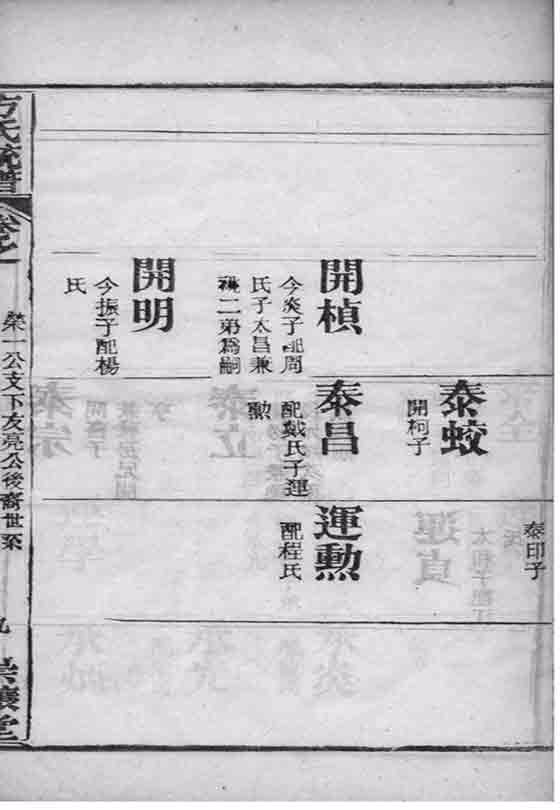 泰印子
泰蛟
開柯子
開楨
今炎子配周
氏子太昌兼
祧二弟為嗣
泰昌
配戴氏子運
勲
運勲
配程氏
開明
今振子配楊
氏
方氏統譜
卷之
榮一公支下友亮公後裔世系
九